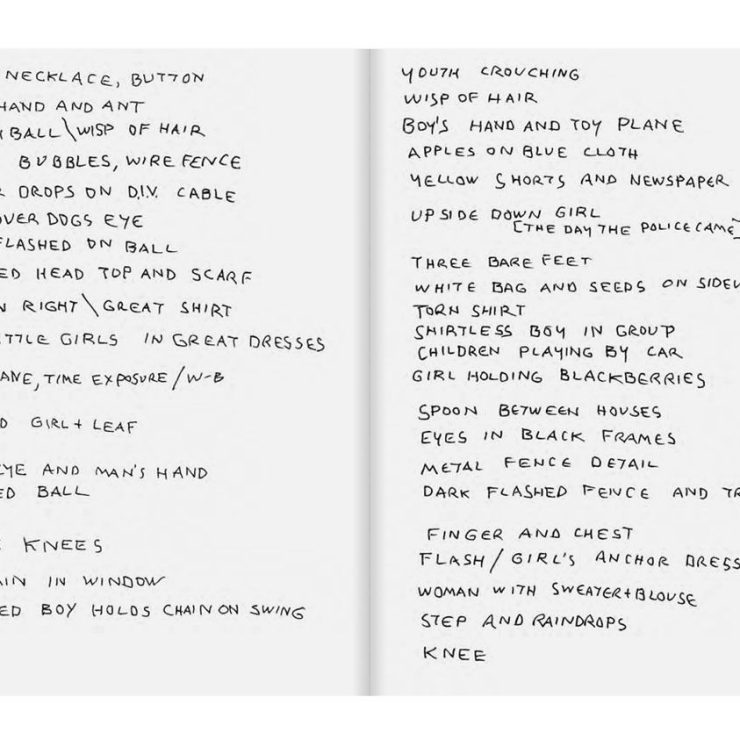 NECKLACE, BUTTON
HAND AND ANT
BALL\WISP OF HAIR
BUBBLES, WIRE FENCE
DROPS ON D.I.V. CABLE
OVER DOGS EYE
FLASHED ON BALL
ED HEAD TOP AND SCARF
RIGHT\GREAT SHIRT
TTLE GIRLS IN GREAT DRESSES
ANE, TIME EXPOSURE/W-B
GIRL + LEAF
EYE AND MAN'S HAND
ED BALL
KNEES
AIN IN WINDOW
ED BOY HOLDS CHAIN ON SWING
YOUTH CROUCHING
WISP OF HAIR
BOY'S HAND AND TOY PLANE
APPLES ON BLUE CLOTH
YELLOW SHORTS AND NEWSPAPER
UPSIDE DOWN GIRL
[THE DAY THE POLICE CAME]
THREE BARE FEET
WHITE BAG AND SEEDS ON SIDEW
TORN SHIRT
SHIRTLESS BOY IN GROUP
CHILDREN PLAYING BY CAR
GIRL HOLDING BLACKBERRIES
SPOON BETWEEN HOUSES
EYES IN BLACK FRAMES
METAL FENCE DETAIL
DARK FLASHED FENCE AND TR
FINGER AND CHEST
FLASH/GIRL'S ANCHOR DRESS
WOMAN WITH SWEATER + BLOUSE
STEP AND RAINDROPS
KNEE